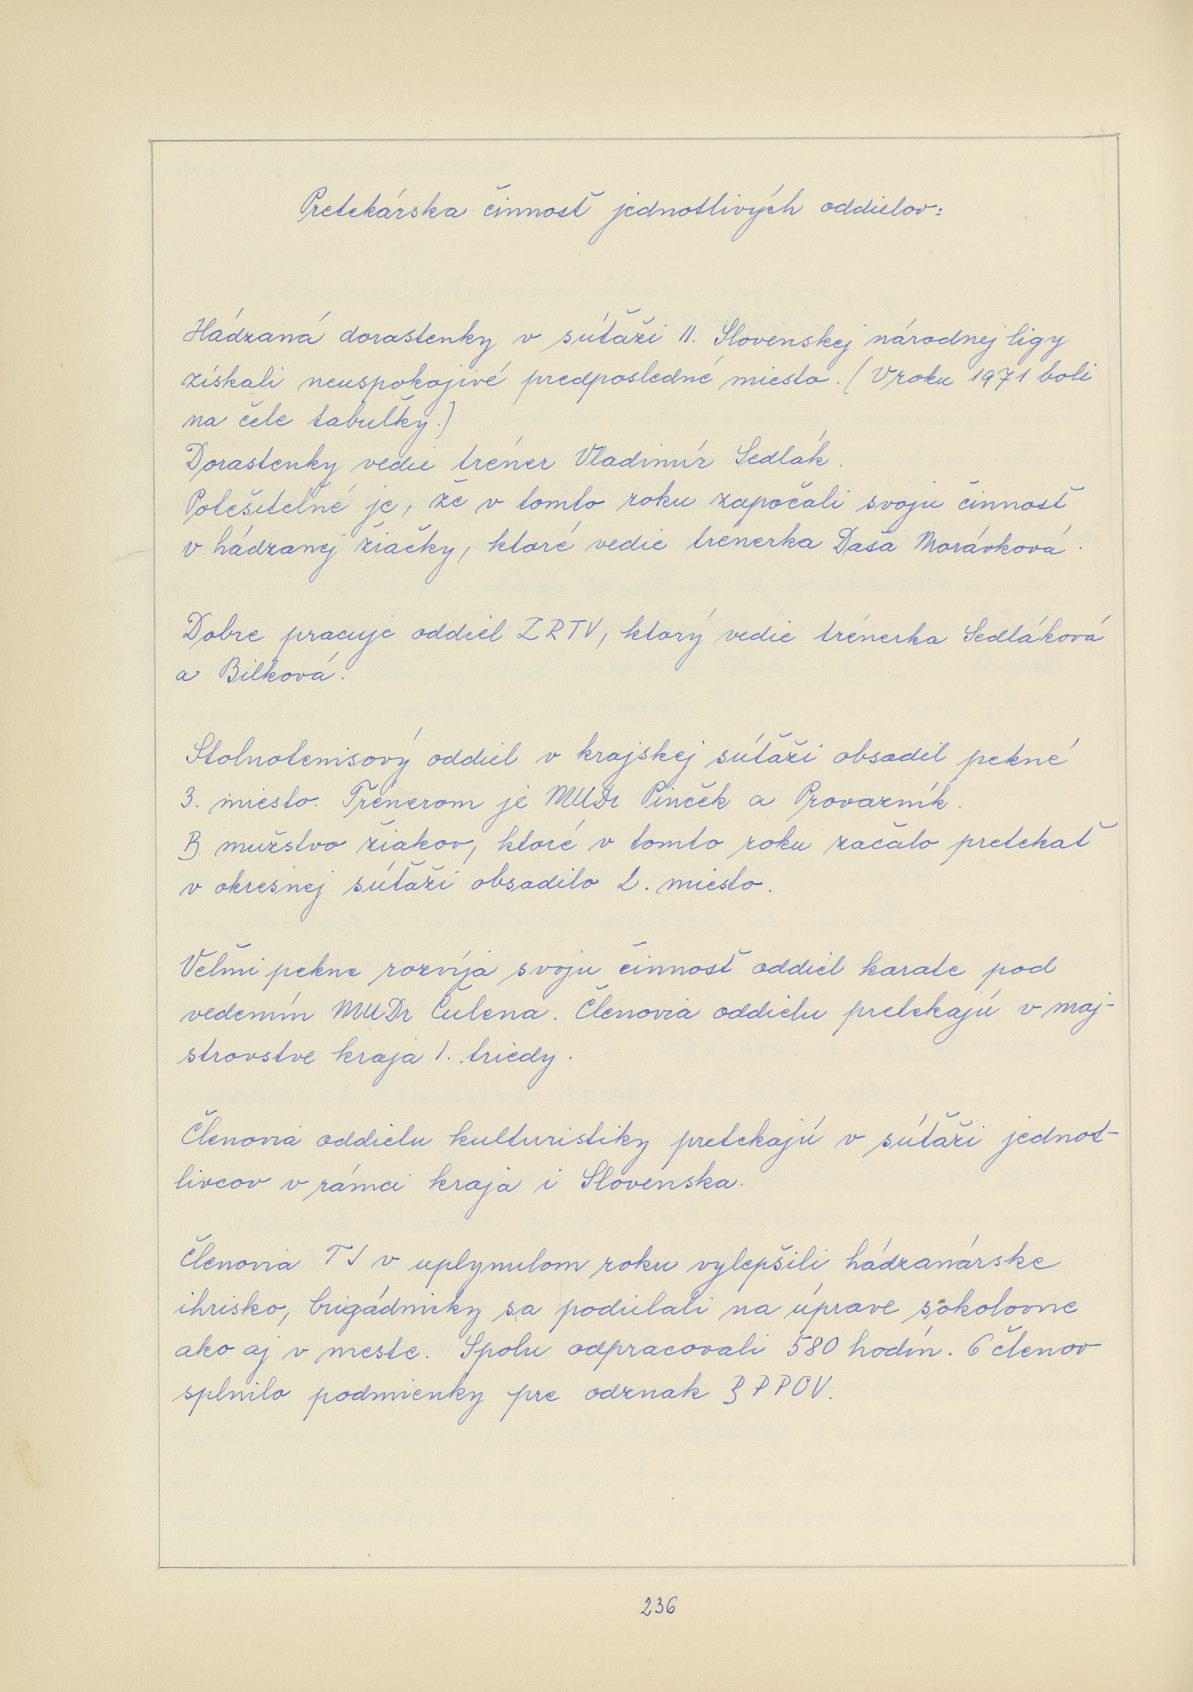 Pretekárska činnosť jednotlivých oddielov:
Hádzaná dorastenky v súťaži II. Slovenskej národnej ligy
získali neuspokojivé predposledné miesto. (V roku 1971 boli
na čele tabuľky.)
Dorastenky vedie tréner Vladimír Sedlák.
Potešiteľné je, že v tomto roku započali svoju činnosť
v hádzanej žiačky, ktoré vedie trénerka Daša Morávková.
Dobre pracuje oddiel ZRTV, ktorý vedie trénerka Sedláková
a Bílková.
Stolnotenisový oddiel v krajskej súťaži obsadil pekné
3. miesto. Trénerom je MUDr Pinček a Provazník.
B mužstvo žiakov, ktoré v tomto roku začalo pretekať
v okresnej súťaži obsadilo 2. miesto.
Veľmi pekne rozvíja svoju činnosť oddiel karate pod
vedením MUDr Čulena. Členovia oddielu pretekajú v maj-
strovstve kraja 1. triedy.
Členovia oddielu kulturistiky pretekajú v súťaži jednot-
livcov v rámci kraja i Slovenska.
Členovia TJ v uplynulom roku vylepšili hádzanárske
ihrisko, brigádnicky sa podielali na úprave sokolovne
ako aj v meste. Spolu odpracovali 580 hodín. 6 členov
splnilo podmienky pre odznak BPPOV.
236